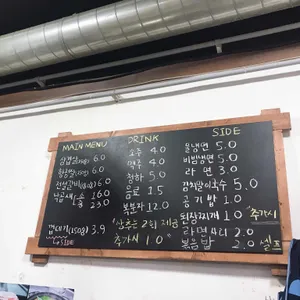 MAIN MENU
삼겹살(150g) 6.0
항정살(150g) 6.0
6.0
16.0
23.0
껍데기(150g) 3.9
↳SIDE
DRINK
소주 4.0
맥주 4.0
청하 5.0
음료 1.5
복분자 12.0
"상추는 2회 제공
추가시 1.0"
SIDE
물냉면 5.0
비빔냉면 5.0
라면 3.0
김치말이국수 5.0
공기밥 1.0
된장찌개 1.0 "추가시
라면사리 2.0
볶음밥 2.0 셀프